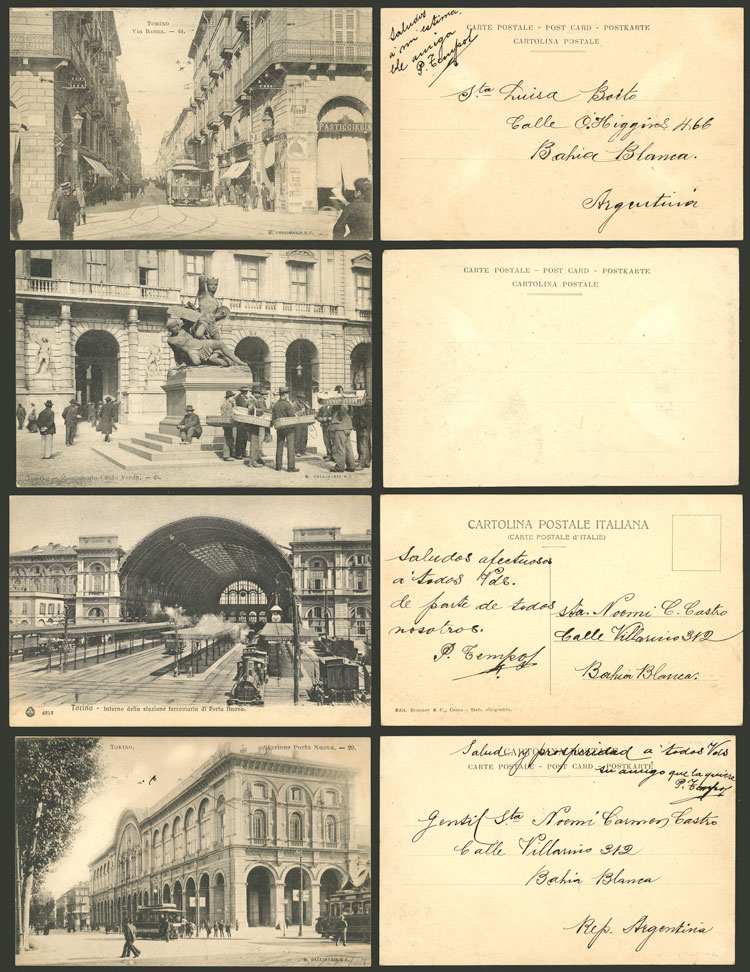 TORINO
Via Roma. — 44.
PASTICCERIA
CARTE POSTALE - POST CARD - POSTKARTE
CARTOLINA POSTALE
Saludos
á mi estima
ble amiga
P. Tempof
Sta Luisa Boito
Calle O'Higgins 466
Bahia Blanca.
Argentina
Monumento — 45.
CARTE POSTALE - POST CARD - POSTKARTE
CARTOLINA POSTALE
4616
Torino - Interno della stazione ferroviaria di Porta Nuova.
CARTOLINA POSTALE ITALIANA
(CARTE POSTALE d'ITALIE)
Saludos afectuosos
á todos Vds.
de parte de todos
nosotros.
P. Tempof
Sta. Noemi C. Castro
Calle Villarino 312
Bahia Blanca.
TORINO.
Stazione Porta Nuova. — 29.
CARTOLINA POSTALE
CARTE POSTALE - POST CARD - POSTKARTE
Salud y prosperidad a todos Vds
su amigo que la quiere
P. Tempof
Gentil Sta Noemi Carmen Castro
Calle Villarino 312
Bahia Blanca
Rep. Argentina